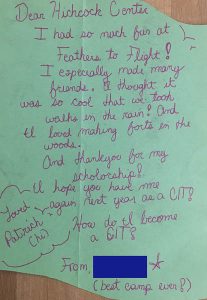 Dear Hichcock Center
I had so much fun at
Feathers to Flight!
I especially made many
friends. I thought it
was so cool that we took
walks in the rain! And
I loved making forts in the
woods.
And thankyou for my
scholorship!
I hope you have me
again next year as a CIT!
How do I become
a CIT?
Loved
Patrick
From
(best camp ever!)